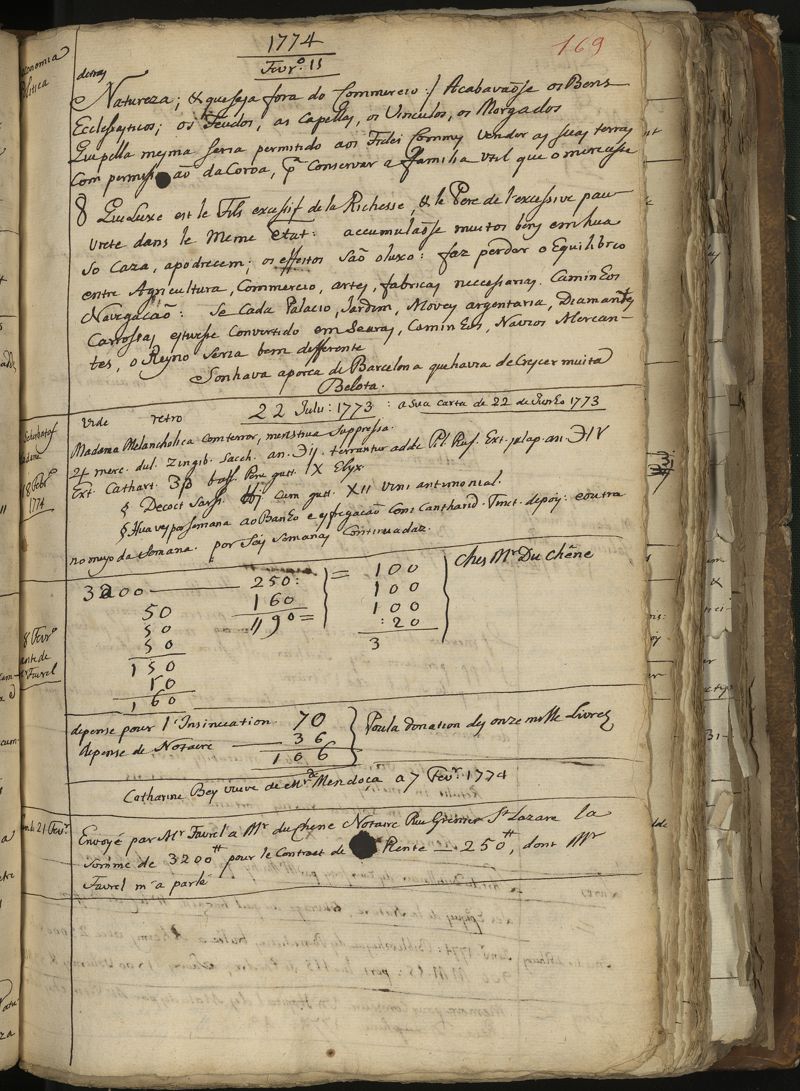 1774
169
Fevr.o 15
Economia
Politica
detraz
Natureza; & que seja fora do Commercio :/ Acabavaõse os Bens
Eccleseyticos; os Feudos, as Capellas, os Vinculos, os Morgados
Que pella mesma seria permitido aos Fidei Commy vender as suas terras
Com permis aõ da Coroa, pa Conservar a familia util que o merecesse
8 Que Luxe est le Fils excessif de la Richesse, & le Pere de l'excessive pau
vrete dans le Meme Etat: accumulaõse muitos bens em hua
so Caza, apodrecem; os effeitos saõ o luxo: faz perder o Equilibrio
entre Agricultura, Commercio, artes, fabricas necessarias. Caminhos
Navegacaõ: Se Cada Palacio, Jardim, Moveis argentaria, Diamantes
Carrossas, estivesse Convertido em Searas, Caminhos, Navios Mercan-
tes, o Reyno seria bem differente
Sonhava a porca de Barcelona que havia de Crescer muita
Belota.
vide retro 22 Julii: 1773 : a sua carta de 22 de Junho 1773
8 Febr.o
1774
Madama Melancholica Com terror, menstrua suppressa.
merc. dul. Zingib. Sacch. an. terrantur adde Pil. Ruf. Ext. jalap. an.
Ext. Cathart. Pera gutt. IX Elyx.
§ Decoct Sars. cum gutt. XII vini antimonial.
§ Hua vez por semana ao Banho e esfregacaõ Com Canthard. Tinct. depois: e outra
no meyo da semana. por seis semanas Continuadas.
3200 — 250:
160
490 =
= 100
100
100
:20
3
Ches Mr Du Chêne
50
50
50
150
10
160
8 Fevr.o
ante de
Favrel
depense pour l'Insinuation 70
depense de Notaire — 36
106
Poula donation des onze mille Livres
Catharine Bey vieve de Mendoça a 7 Fevr. 1774
21 Fevr.
Envoyé par Mr Favrel a Mr du Chene Notaire Rue Grenier St Lazare la
somme de 3200tt pour le Contract de Rente — 250tt, dont Mr
Favrel m'a parlé